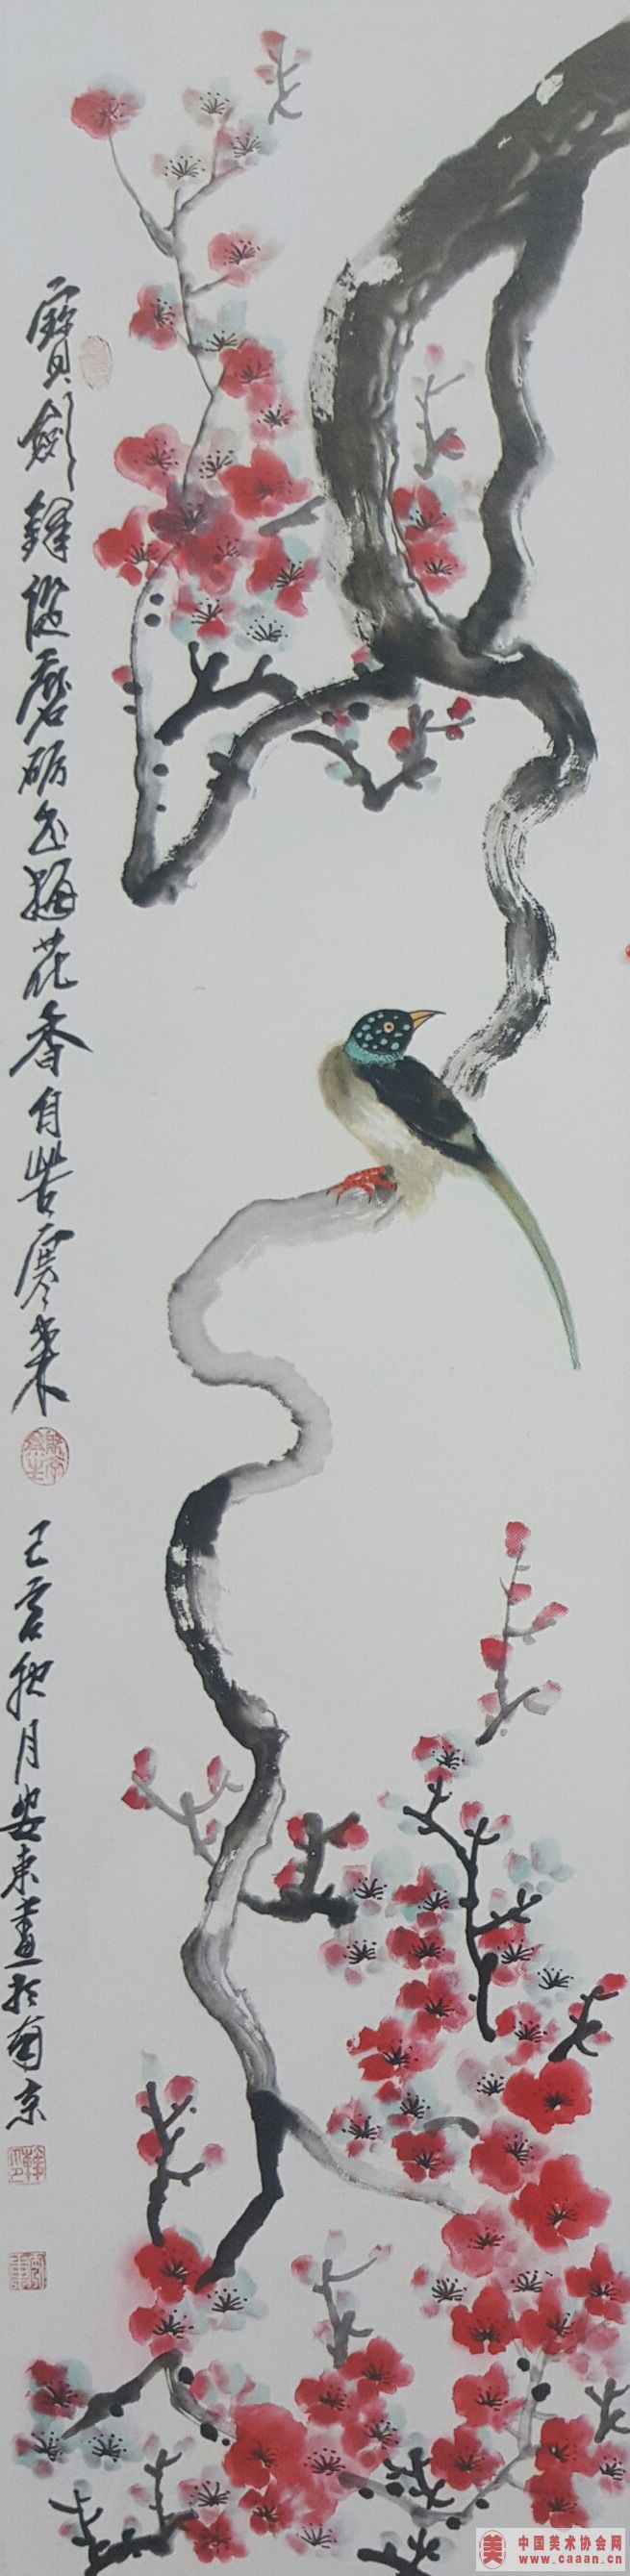 寶劍鋒從磨礪出梅花香自苦寒來
己亥秋月安東畫於南京
美 中国美术协会网
www.caaan.cn